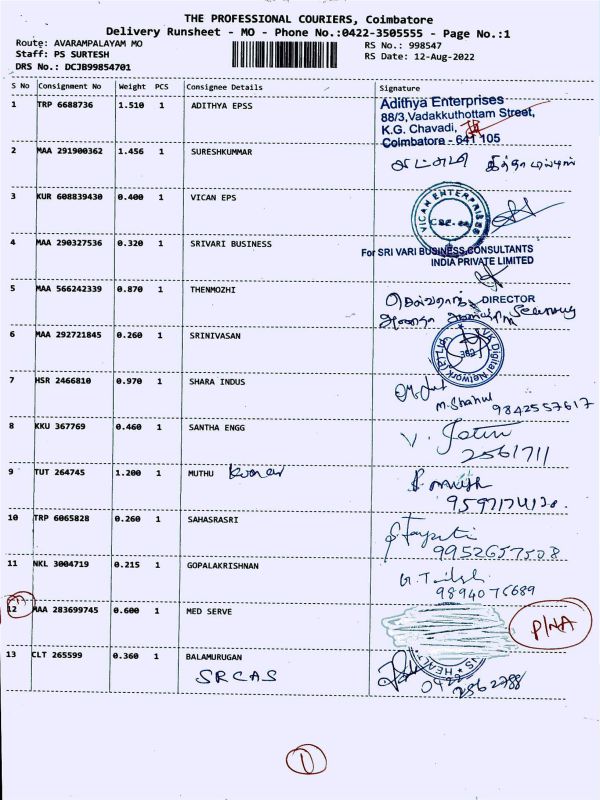 THE PROFESSIONAL COURIERS, Coimbatore
Delivery Runsheet - MO - Phone No.:0422-3505555 - Page No.:1
Route: AVARAMPALAYAM MO
Staff: PS SURTESH
DRS No.: DCJB99854701
RS No.: 998547
RS Date: 12-Aug-2022
S No Consignment No Weight PCS Consignee Details Signature
1 TRP 6688736 1.510 1 ADITHYA EPSS
Adithya Enterprises
88/3,Vadakkuthottam Street,
K.G. Chavadi,
Coimbatore - 641 105
2 MAA 291900362 1.456 1 SURESHKUMMAR
3 KUR 608839430 0.400 1 VICAN EPS
VICAN ENTERPRISES
4 MAA 290327536 0.320 1 SRIVARI BUSINESS
For SRI VARI BUSINESS CONSULTANTS
INDIA PRIVATE LIMITED
5 MAA 566242339 0.870 1 THENMOZHI
DIRECTOR
6 MAA 292721845 0.260 1 SRINIVASAN
Digital Network (P) LTD
7 HSR 2466810 0.970 1 SHARA INDUS
M. Shahul
9842557617
8 KKU 367769 0.460 1 SANTHA ENGG
2561711
9 TUT 264745 1.200 1 MUTHU Kumar
10 TRP 6065828 0.260 1 SAHASRASRI
9952657508
11 NKL 3004719 0.215 1 GOPALAKRISHNAN
9894076689
12 MAA 283699745 0.600 1 MED SERVE
P/NA
13 CLT 265599 0.360 1 BALAMURUGAN
SRCAS
0422
2562788
1